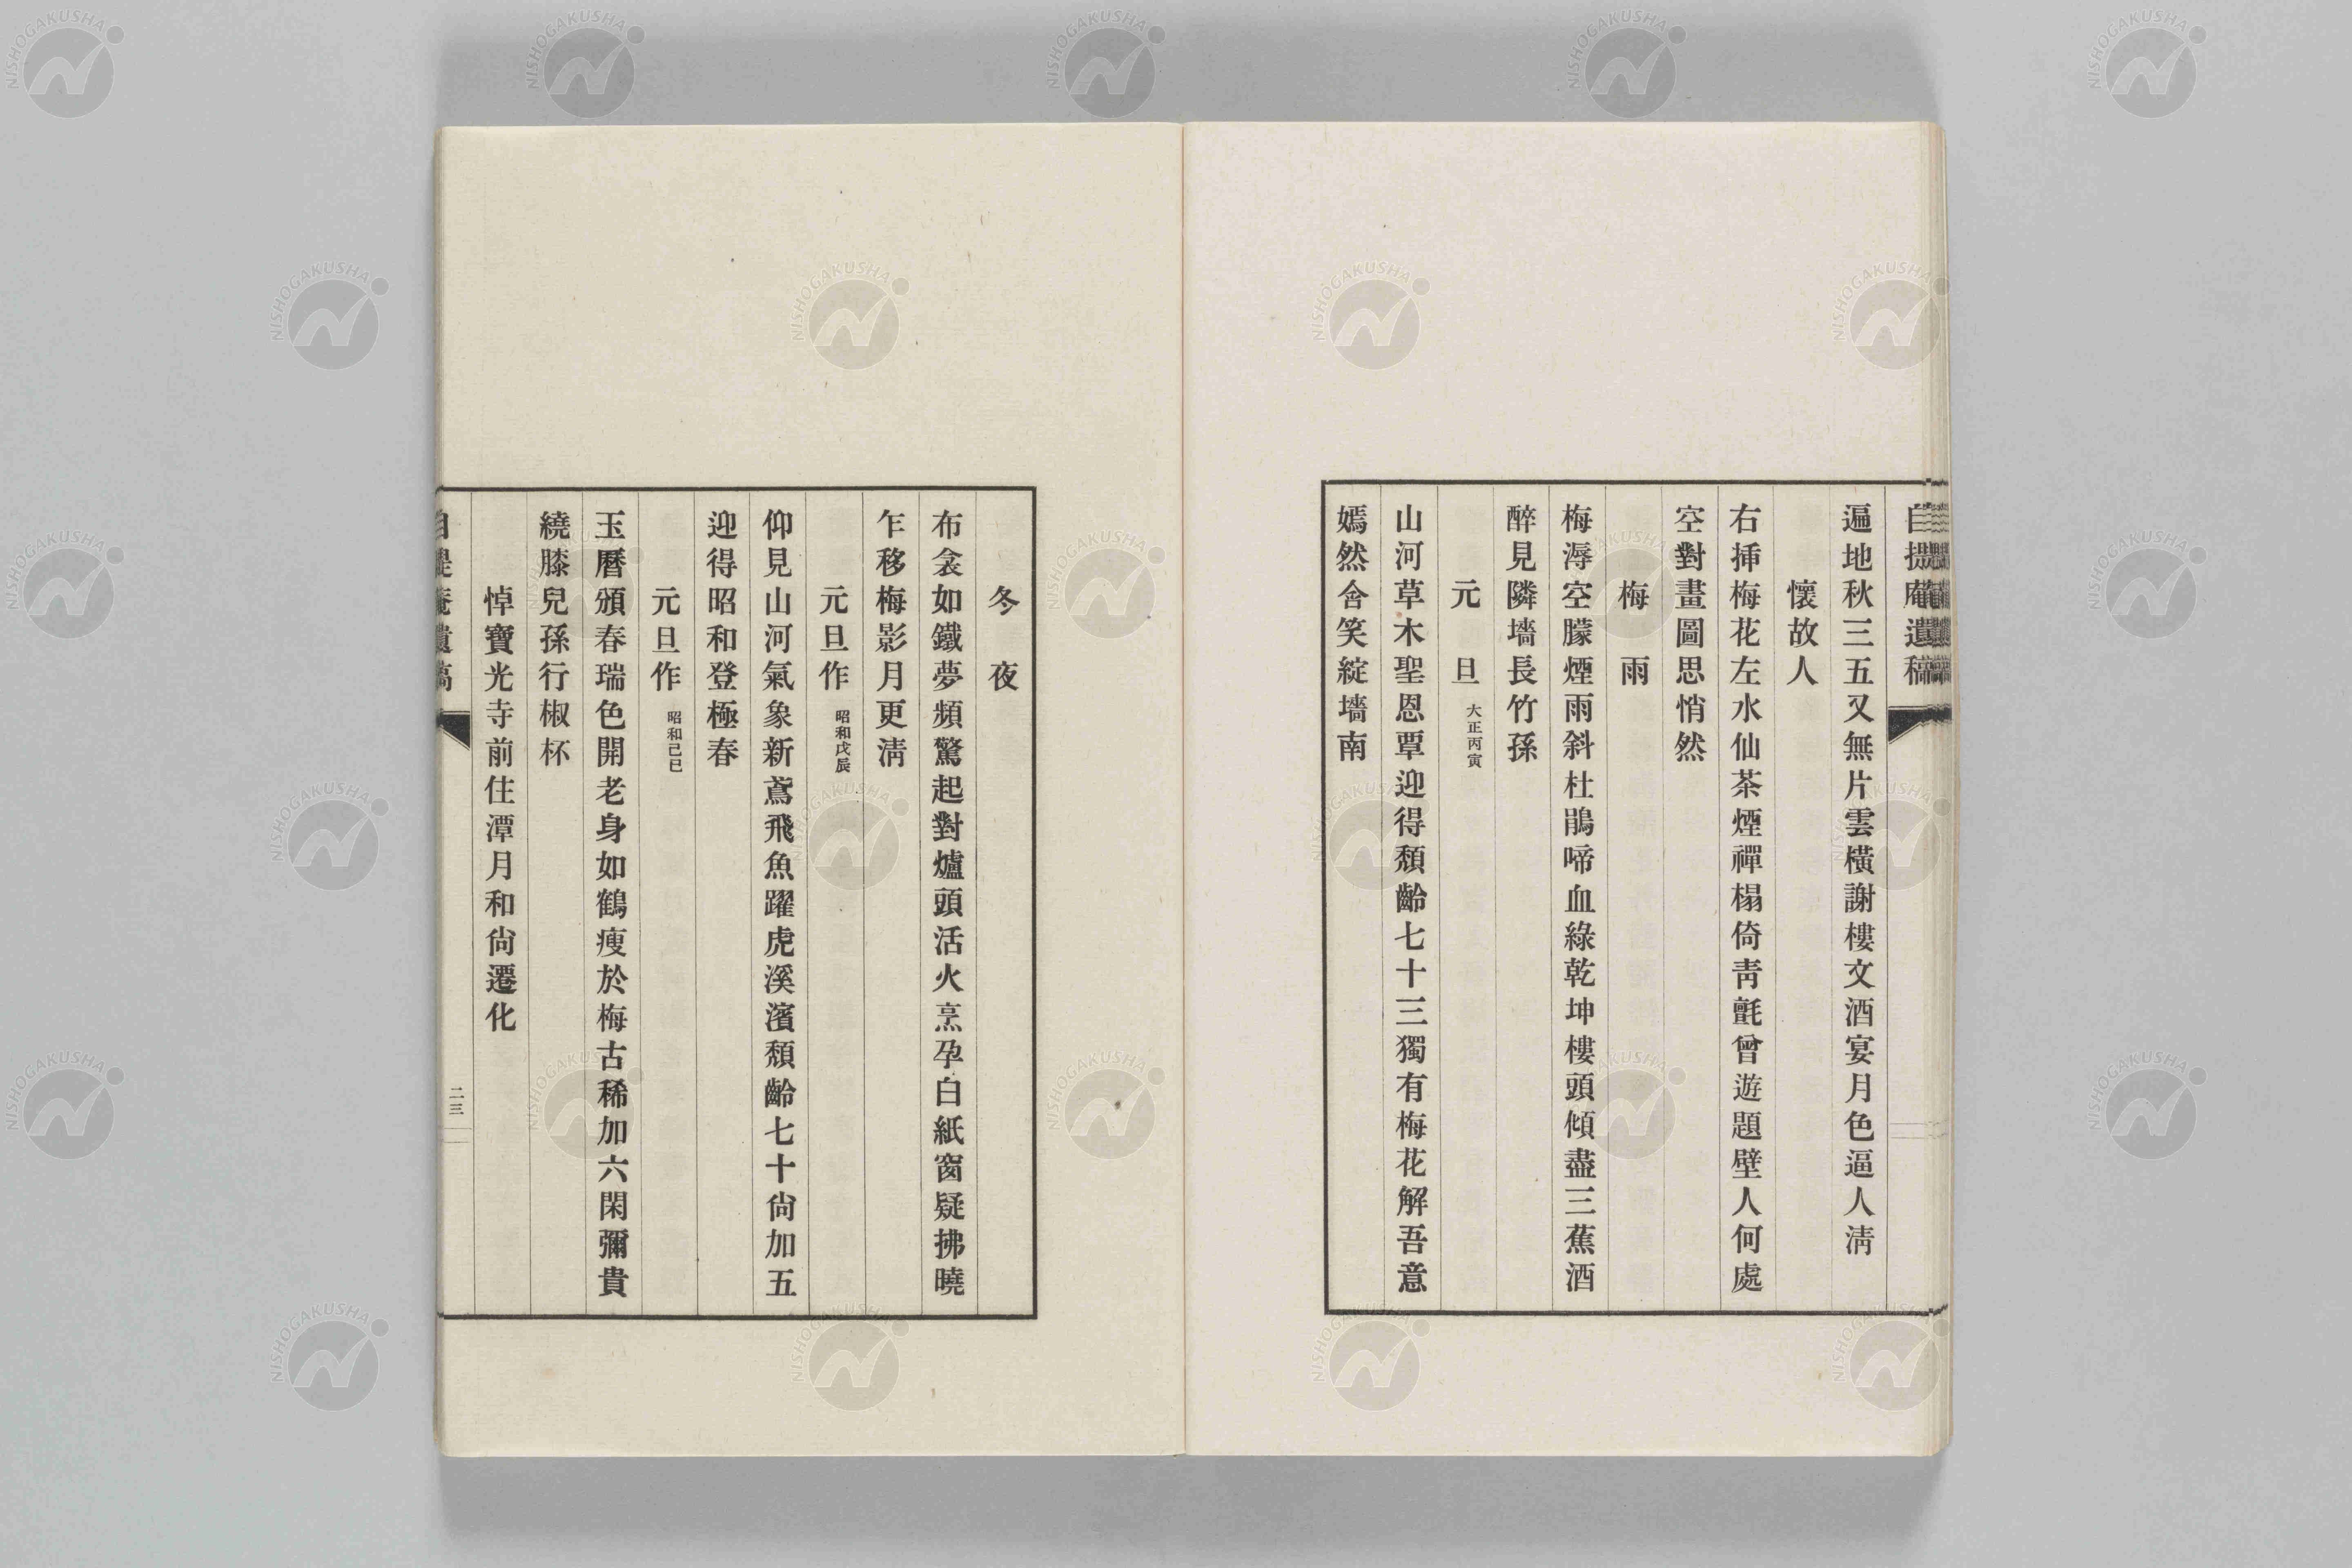 自提庵遺稿
遍地秋三五又無片雲橫謝樓文酒宴月色逼人淸
懷故人
右揷梅花左水仙茶煙禪榻倚靑氈曾遊題壁人何處
空對畫圖思悄然
梅雨
梅溽空朦煙雨斜杜鵑啼血綠乾坤樓頭傾盡三蕉酒
醉見隣墻長竹孫
元旦 大正丙寅
山河草木聖恩覃迎得頽齡七十三獨有梅花解吾意
嫣然含笑綻墻南
冬夜
布衾如鐵夢頻驚起對爐頭活火烹孕白紙窗疑拂曉
乍移梅影月更淸
元旦作 昭和戊辰
仰見山河氣象新鳶飛魚躍虎溪濱頽齡七十尙加五
迎得昭和登極春
元旦作 昭和己巳
玉曆頒春瑞色開老身如鶴瘦於梅古稀加六閑彌貴
繞膝兒孫行椒杯
悼寶光寺前住潭月和尙遷化
自提庵遺稿
二三
NISHOGAKUSHA